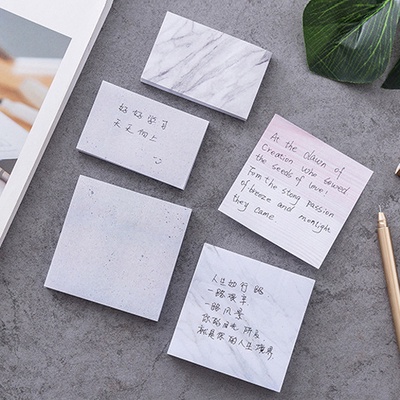 好好学习
天天向上
At the Dawn of
Creation who sowed
the seeds of love!
Tom the stong passion
of breeze and moonligh
they came.
人生如行路
一路艰辛
一路风景
你的目光所及
就是你的人生境界